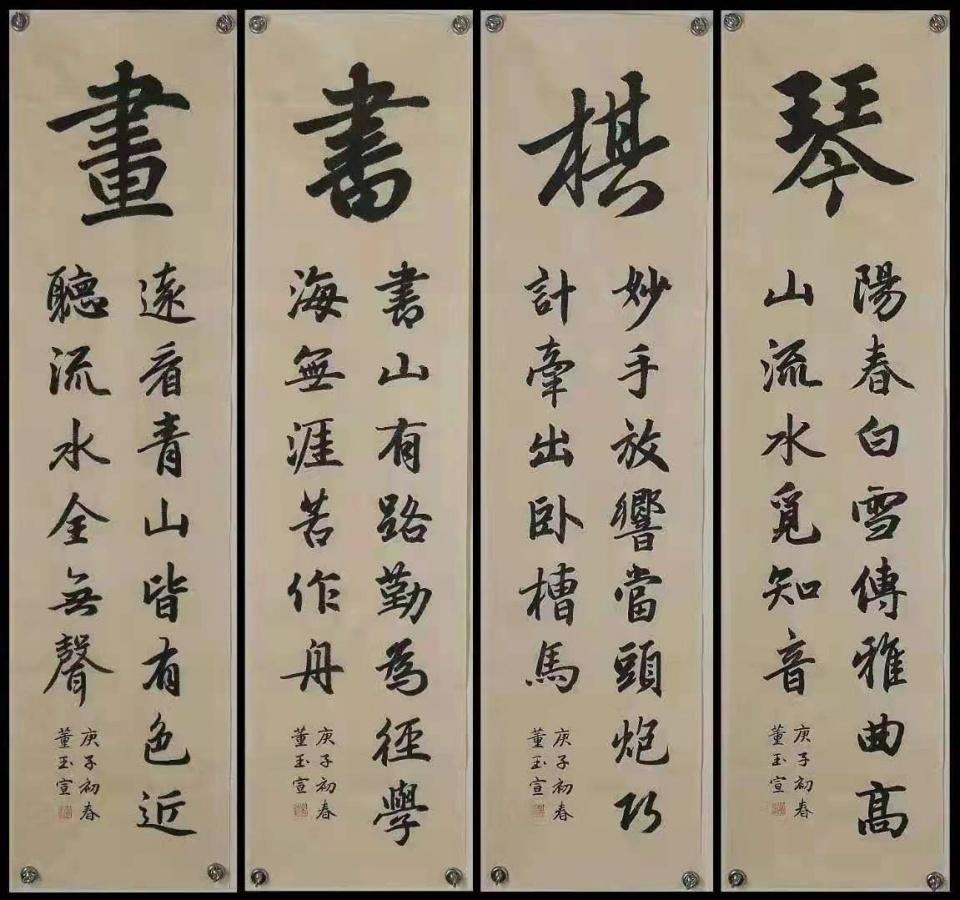 琴
陽春白雪傳雅曲高
山流水覓知音
庚子初春
董玉宣
棋
妙手放響當頭炮巧
計牽出卧槽馬
庚子初春
董玉宣
書
書山有路勤為徑學
海無涯苦作舟
庚子初春
董玉宣
畫
遠看青山皆有色近
聽流水全無聲
庚子初春
董玉宣